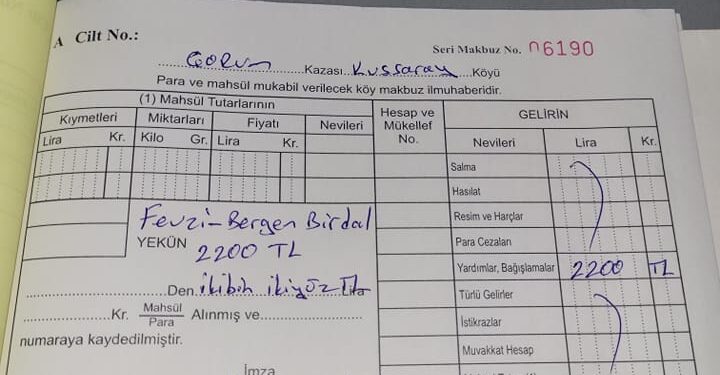 A Cilt No.:
Seri Makbuz No. 06190
Çorum Kazası Kussaray Köyü
Para ve mahsül mukabil verilecek köy makbuz ilmuhaberidir.
(1) Mahsül Tutarlarının
Kıymetleri Miktarları Fiyatı Nevileri
Lira Kr. Kilo Gr. Lira Kr.
Hesap ve
Mükellef
No.
GELİRİN
Nevileri Lira Kr.
Salma
Hasılat
Resim ve Harçlar
Para Cezaları
Yardımlar, Bağışlamalar 2200 TL
Türlü Gelirler
İstikrazlar
Muvakkat Hesap
Fevzi-Bergen Birdal
YEKÜN 2200 TL
Den ikibin ikiyüz TL Lira
Kr. Mahsül
Para Alınmış ve
numaraya kaydedilmiştir.
İmza